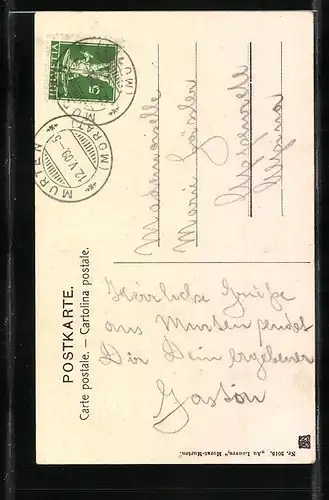 HELVETIA
5
MURTEN (MORAT)
12.V.09.-5
POSTKARTE.
Carte postale. — Cartolina postale.
Mademoiselle
Marie
Herrliche Grüße
aus Murten sendet
Dir Dein ergebener
Gaston
Nr. 2018. „Au Louvre," Morat-Murten.